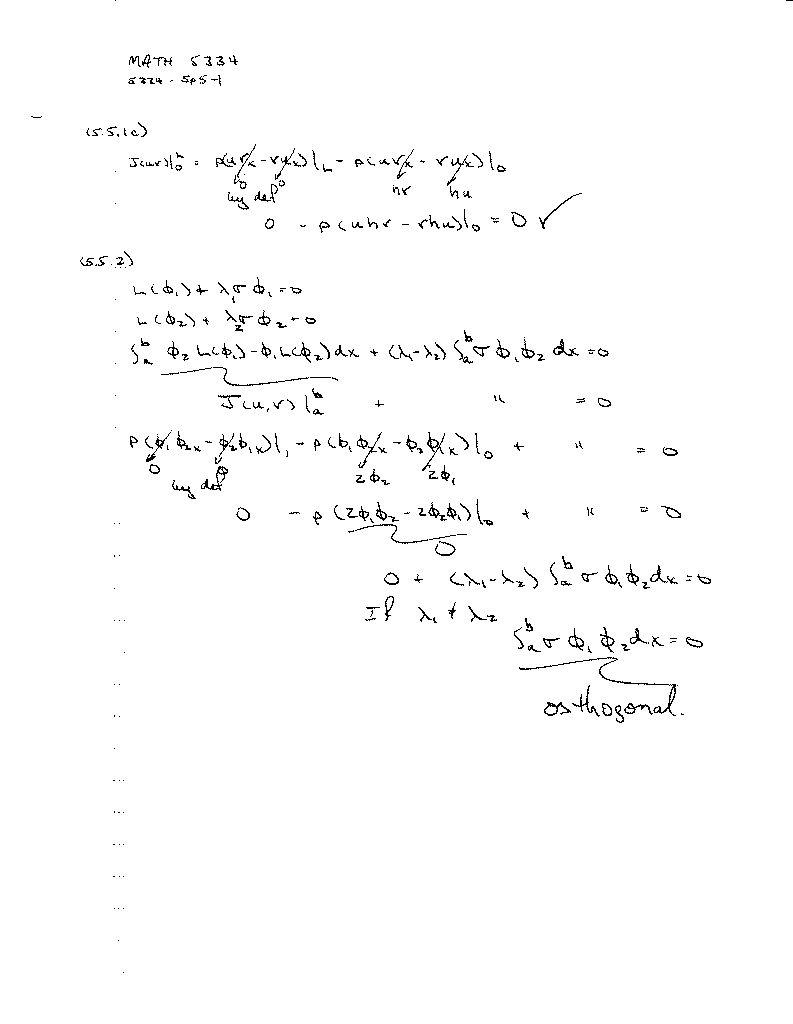 MATH 5334
5334 - Sp5-1
(5.5.1c)
J(u,v)|₀ᵇ = p(uvₓ - vuₓ)|_L - p(uvₓ - vuₓ)|₀
0 0 hv hu
by def
0 - p(uhv - vhu)|₀ = 0 ✓
(5.5.2)
L(ϕ₁) + λ₁σϕ₁ = 0
L(ϕ₂) + λ₂σϕ₂ = 0
∫ₐᵇ ϕ₂L(ϕ₁) - ϕ₁L(ϕ₂)dx + (λ₁-λ₂) ∫ₐᵇ σϕ₁ϕ₂ dx = 0
J(u,v)|ₐᵇ + " = 0
p(ϕ₁ϕ₂ₓ - ϕ₂ϕ₁ₓ)|₁ - p(ϕ₁ϕ₂ₓ - ϕ₂ϕ₁ₓ)|₀ + " = 0
0 0 2ϕ₂ 2ϕ₁
by def
0 - p(2ϕ₁ϕ₂ - 2ϕ₂ϕ₁)|₀ + " = 0
0
0 + (λ₁-λ₂) ∫ₐᵇ σϕ₁ϕ₂dx = 0
If λ₁ ≠ λ₂
∫ₐᵇ σϕ₁ϕ₂dx = 0
orthogonal.